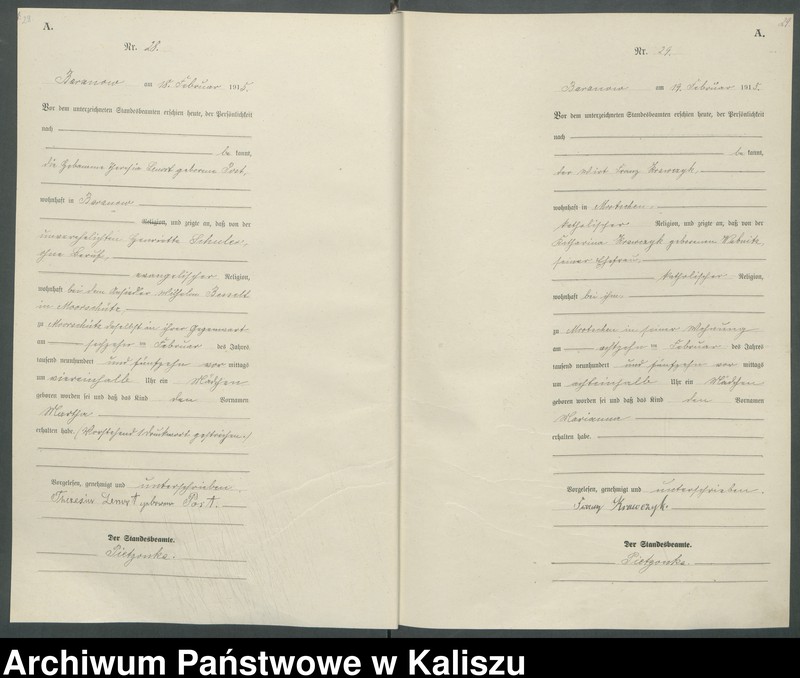 A.
Nr. 28.
Baranow am 18. Februar 1915.
Vor dem unterzeichneten Standesbeamten erschien heute, der Persönlichkeit
nach
be kannt,
die Hebamme Theresia Lenort geborene Post,
wohnhaft in Baranow
Religion, und zeigte an, daß von der
unverehelichten Henriette Schuler,
ohne Beruf,
evangelischer Religion,
wohnhaft bei dem Wilhelm
in Moorschütz
zu Moorschütz daselbst in ihrer Gegenwart
am sechzehn ten Februar des Jahres
tausend neunhundert und fünfzehn vor mittags
um viereinhalb Uhr ein Mädchen
geboren worden sei und daß das Kind den Vornamen
Martha
erhalten habe. (Vorstehend 1 Druckwort gestrichen.)
Vorgelesen, genehmigt und unterschrieben.
Theresia Lenort geborene Post.
Der Standesbeamte.
Pietzonka.
29
A.
Nr. 29.
Baranow am 19. Februar 1915.
Vor dem unterzeichneten Standesbeamten erschien heute, der Persönlichkeit
nach
be kannt,
der Wirt Franz Krawczyk,
wohnhaft in Mrotschen
katholischer Religion, und zeigte an, daß von der
Katharina Krawczyk geborenen
seiner Ehefrau
katholischer Religion,
wohnhaft bei ihm
zu Mrotschen in seiner Wohnung
am achtzehn ten Februar des Jahres
tausend neunhundert und fünfzehn vor mittags
um achteinhalb Uhr ein Mädchen
geboren worden sei und daß das Kind den Vornamen
Marianna
erhalten habe.
Vorgelesen, genehmigt und unterschrieben.
Franz Krawczyk.
Der Standesbeamte.
Pietzonka.
Archiwum Państwowe w Kaliszu